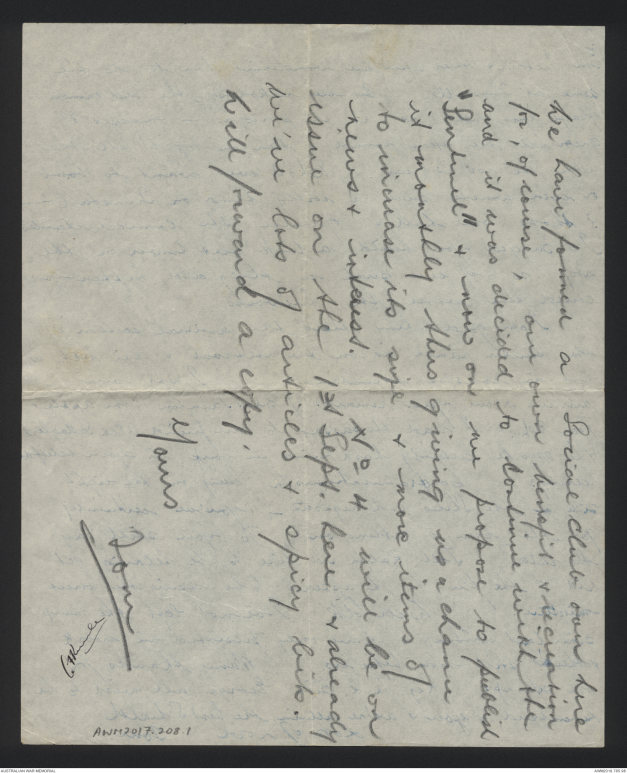 We have formed a Social Club over here
for, of course, our own benefit & recreation
and it was decided to continue with the
"Sentinel" & now on we propose to publish
it monthly thus giving us a chance
to increase its size & more items of
news & interest. No 4 will be on
issue on the 1st Sept. here & already
we've lots of articles & spicy bits.
Will forward a copy.
Yours
Tom
AWM2017.208.1
AUSTRALIAN WAR MEMORIAL